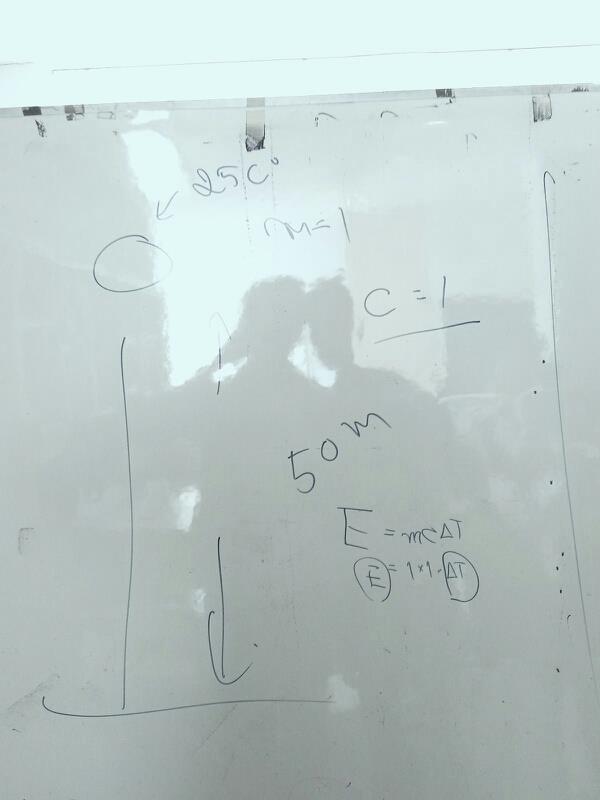 25C°
m=1
C=1
50m
E=mCΔT
E=1×1·ΔT